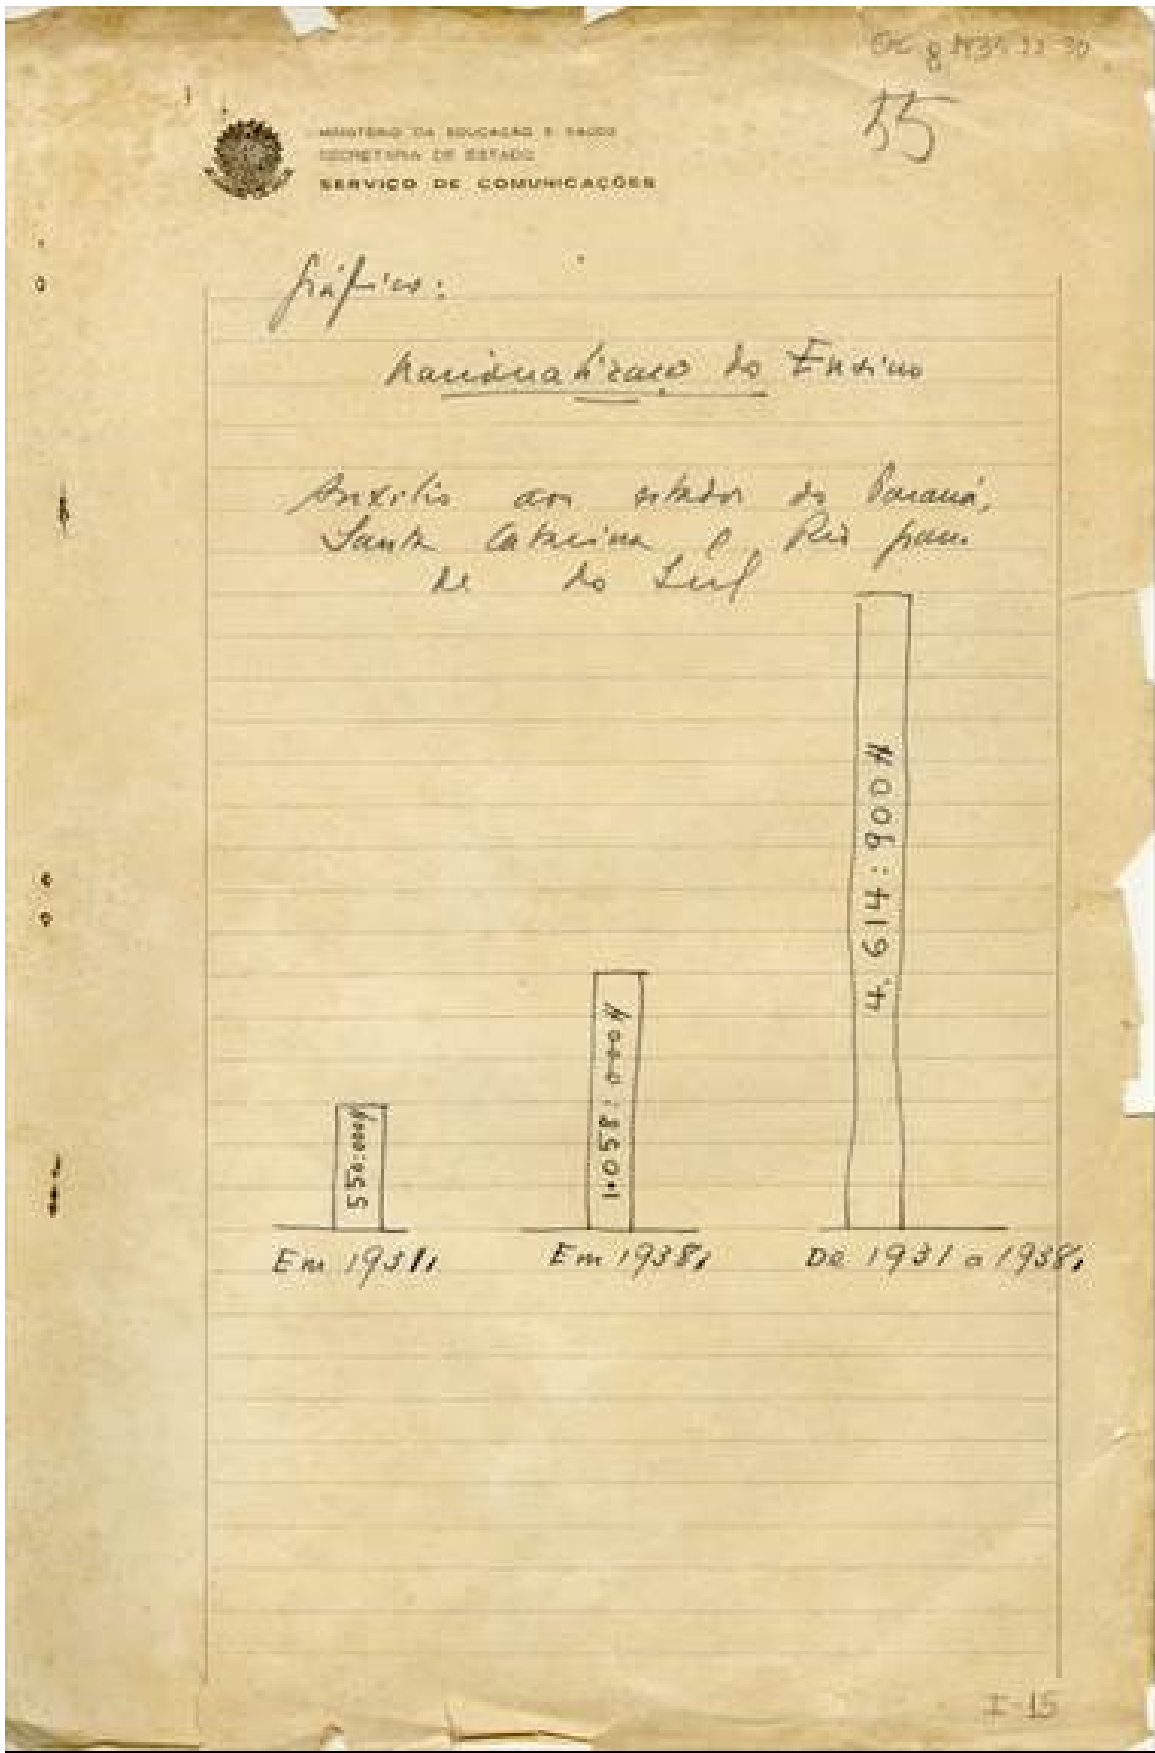 55
MINISTÉRIO DA EDUCAÇÃO E SAÚDE
SECRETARIA DE ESTADO
SERVIÇO DE COMUNICAÇÕES
Gráfico:
Nacionalização do Ensino
Auxílio aos estados do Paraná,
Santa Catarina e Rio Gran
de do Sul
550:000$
1.058:000$
4.614:900$
Em 1931,
Em 1938,
De 1931 a 1938,
I-15